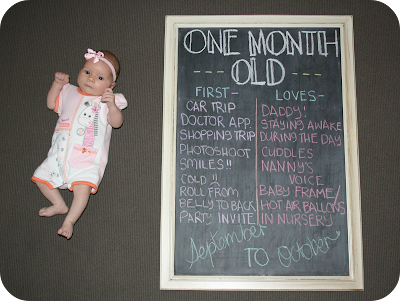 ONE MONTH
--- OLD ---
FIRST-
CAR TRIP
DOCTOR APP.
SHOPPING TRIP
PHOTOSHOOT
SMILES!!
COLD !!
ROLL FROM
BELLY TO BACK
PARTY INVITE
LOVES-
DADDY!
STAYING AWAKE
DURING THE DAY
CUDDLES
NANNY'S
VOICE
BABY FRAME/
HOT AIR BALLONS
IN NURSERY
September
TO October